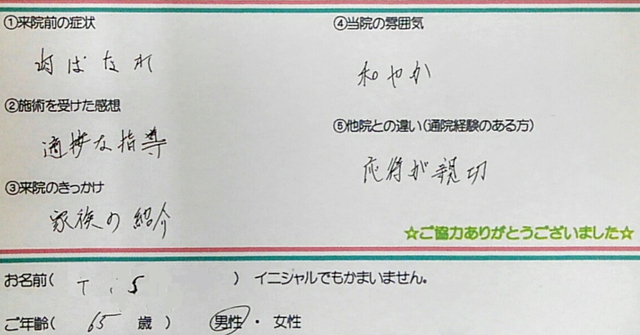 ①来院前の症状
肘ばなれ
②施術を受けた感想
適捗な指導
③来院のきっかけ
家族の紹介
④当院の雰囲気
和やか
⑤他院との違い(通院経験のある方)
応待が親切
☆ご協力ありがとうございました☆
お名前( T.S ) イニシャルでもかまいません。
ご年齢( 65 歳 ) 男性・女性